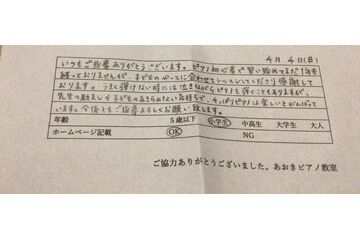 4月 4日(日)
いつもご指導ありがとうございます。ピアノ初心者で習い始めてまだ1年半
経っておりませんが、子どものペースに合わせてレッスンしてくださり感謝して
おります。うまく弾けない時には泣きながらピアノを弾くこともありますが、
先生の励ましと子どものあきらめたくない気持ちで、やっぱりピアノは楽しいとがんばって
います。今後ともご指導よろしくお願い致します。
年齢 5歳以下 小学生 中高生 大学生 大人
ホームページ記載 OK NG
ご協力ありがとうございました。あおきピアノ教室